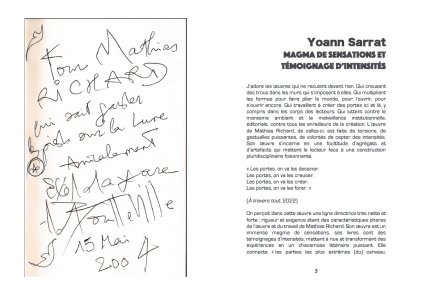 Pour Mathias
RICHARD
qui sait garder
pieds sur la Lune
Amicalement
15 Mai
2004
Yoann Sarrat
MAGMA DE SENSATIONS ET
TÉMOIGNAGE D'INTENSITÉS
J'adore les œuvres qui ne reculent devant rien. Qui creusent
des trous dans les murs qui s'imposent à elles. Qui multiplient
les formes pour faire plier le monde, pour l'ouvrir, pour
s'ouvrir encore. Qui travaillent à créer des portes ici et là, y
compris dans les corps des lecteurs. Qui luttent contre le
marasme ambiant et la malveillance institutionnelle,
éditoriale, contre tous les enrailleurs de la création. L'œuvre
de Mathias Richard, de celles-ci, est faite de torsions, de
gestuelles puissantes, de volontés de capter des intensités.
Son œuvre s'incarne en une foultitude d'agrégats et
d'artefacts qui mettent le lecteur face à une construction
pluridisciplinaire foisonnante.
« Les portes, on va les dessiner.
Les portes, on va les creuser.
Les portes, on va les créer.
Les portes, on va les forer. »
(À travers tout, 2022)
On perçoit dans cette œuvre une ligne directrice très nette et
forte ; rigueur et exigence étant des caractéristiques phares
de l'œuvre et du travail de Mathias Richard. Son œuvre est un
immense magma de sensations, ses livres sont des
témoignages d'intensités, mettent à nue et transforment des
expériences en un chaosmose littéraire puissant. Elle
connecte « les parties les plus extrêmes (du) cerveau.
3